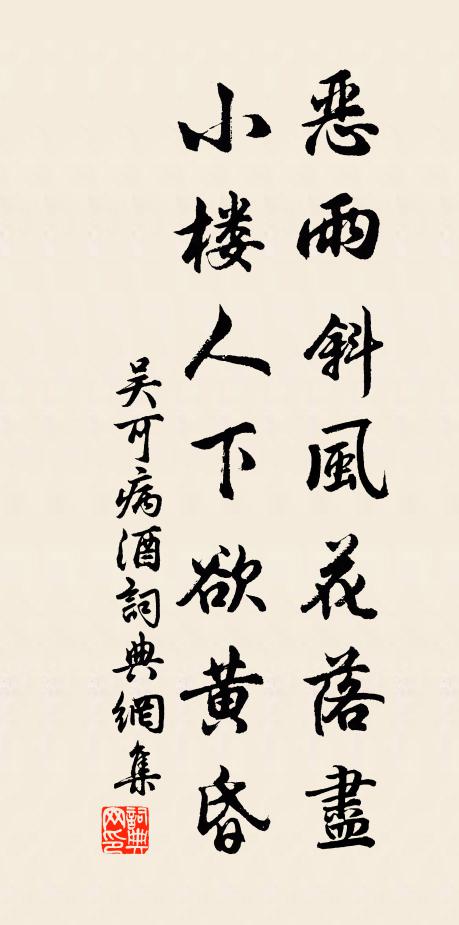 恶雨斜風花落盡
小楼人下欲黄昏
吴可病酒詞典網集
詞典網印